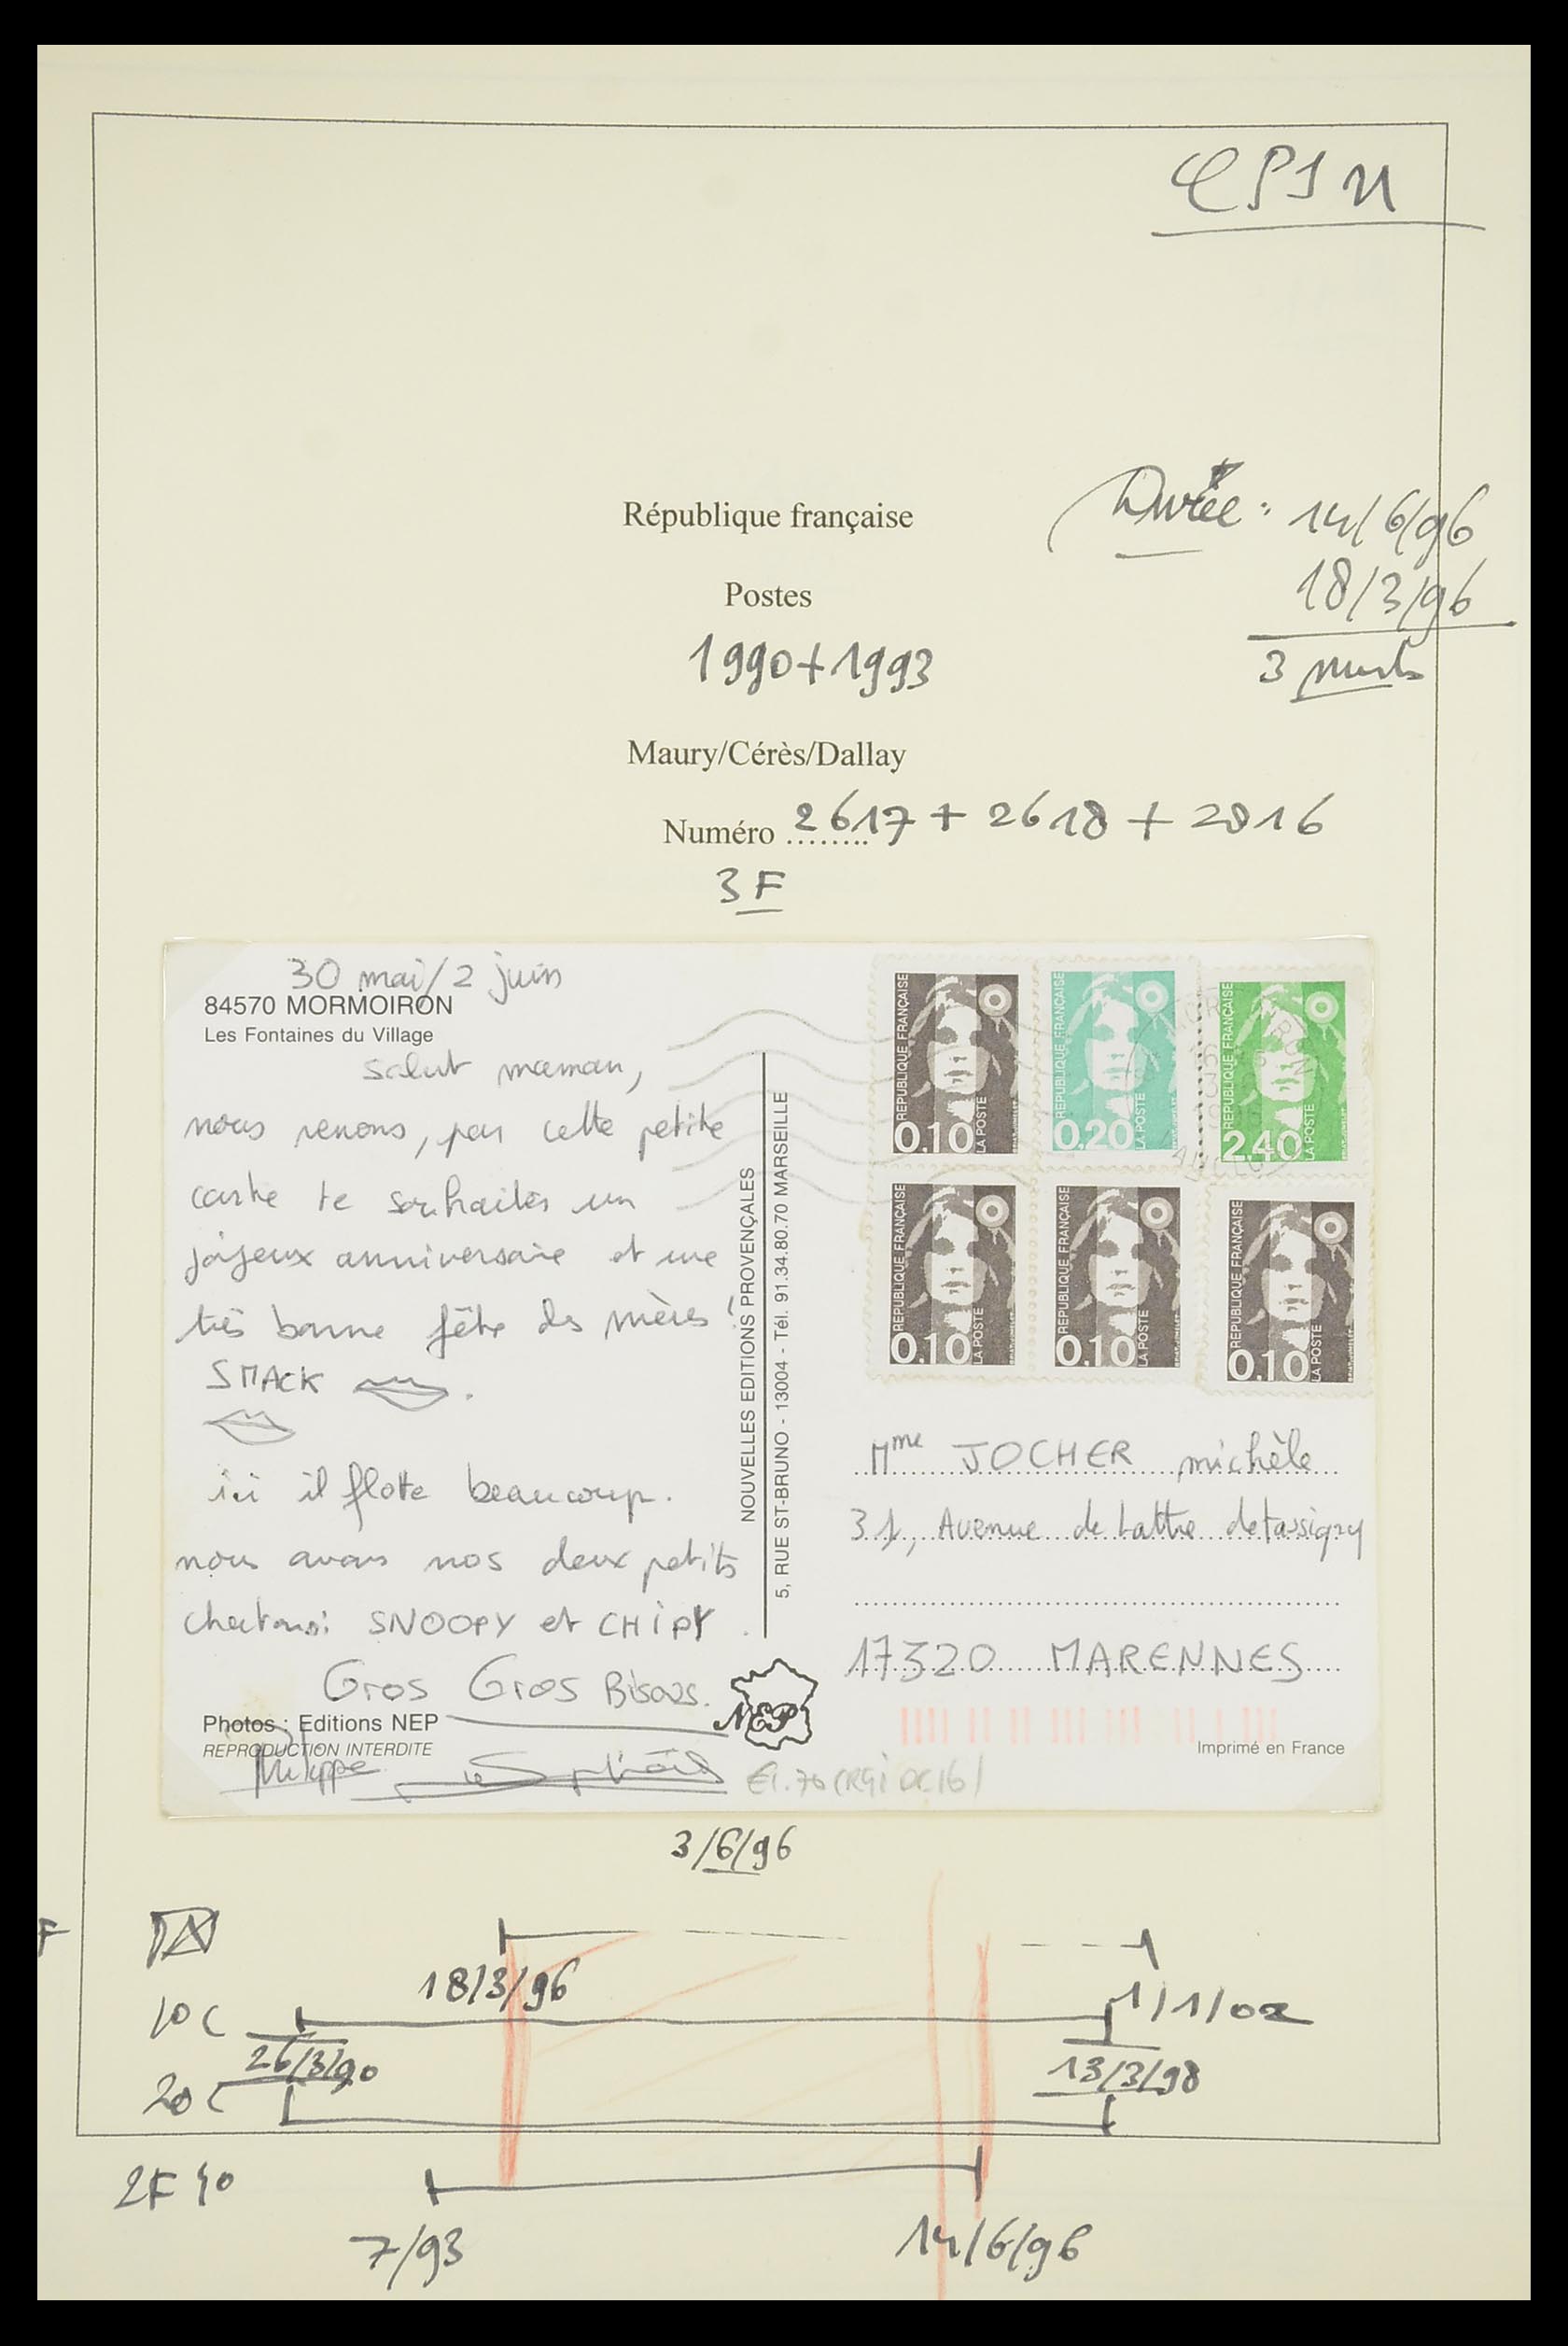 CPSM
Durée : 14/6/96
18/3/96
3 mois
République française
Postes
1990+1993
Maury/Cérès/Dallay
Numéro ........ 2617 + 2618 + 2816
3F
30 mai/2 juin
84570 MORMOIRON
Les Fontaines du Village
Salut maman,
nous venons, par cette petite
carte te souhaiter un
joyeux anniversaire et une
très bonne fête des mères !
SMACK
ici il flotte beaucoup.
nous avons nos deux petits
chatons: SNOOPY et CHIPY.
Gros Gros Bisous.
Photos : Editions NEP
REPRODUCTION INTERDITE
Philippe
NOUVELLES EDITIONS PROVENÇALES
5, RUE ST-BRUNO - 13004 - Tél. 91.34.80.70 MARSEILLE
NEP
REPUBLIQUE FRANÇAISE
0.10
LA POSTE
REPUBLIQUE FRANÇAISE
0.20
LA POSTE
REPUBLIQUE FRANÇAISE
2.40
LA POSTE
REPUBLIQUE FRANÇAISE
0.10
LA POSTE
REPUBLIQUE FRANÇAISE
0.10
LA POSTE
REPUBLIQUE FRANÇAISE
0.10
LA POSTE
Mme JOCHER michèle
31, Avenue de Lattre detassigny
17320 MARENNES
Imprimé en France
3/6/96
F
18/3/96
1/1/02
10 C
26/3/90
13/3/98
20 C
2F 40
7/93
14/6/96